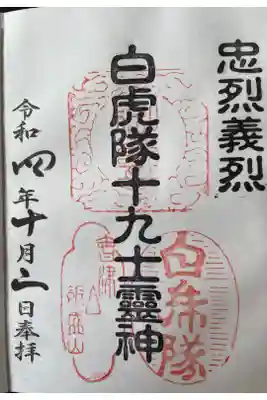 忠烈義烈
白虎隊十九士靈神
白虎隊
會津
飯盛山
令和四年十月二日奉拜